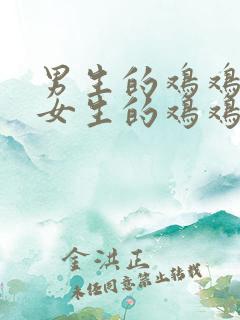 男生的鸡鸡
女生的鸡鸡
金洪正
未经同意禁止转载